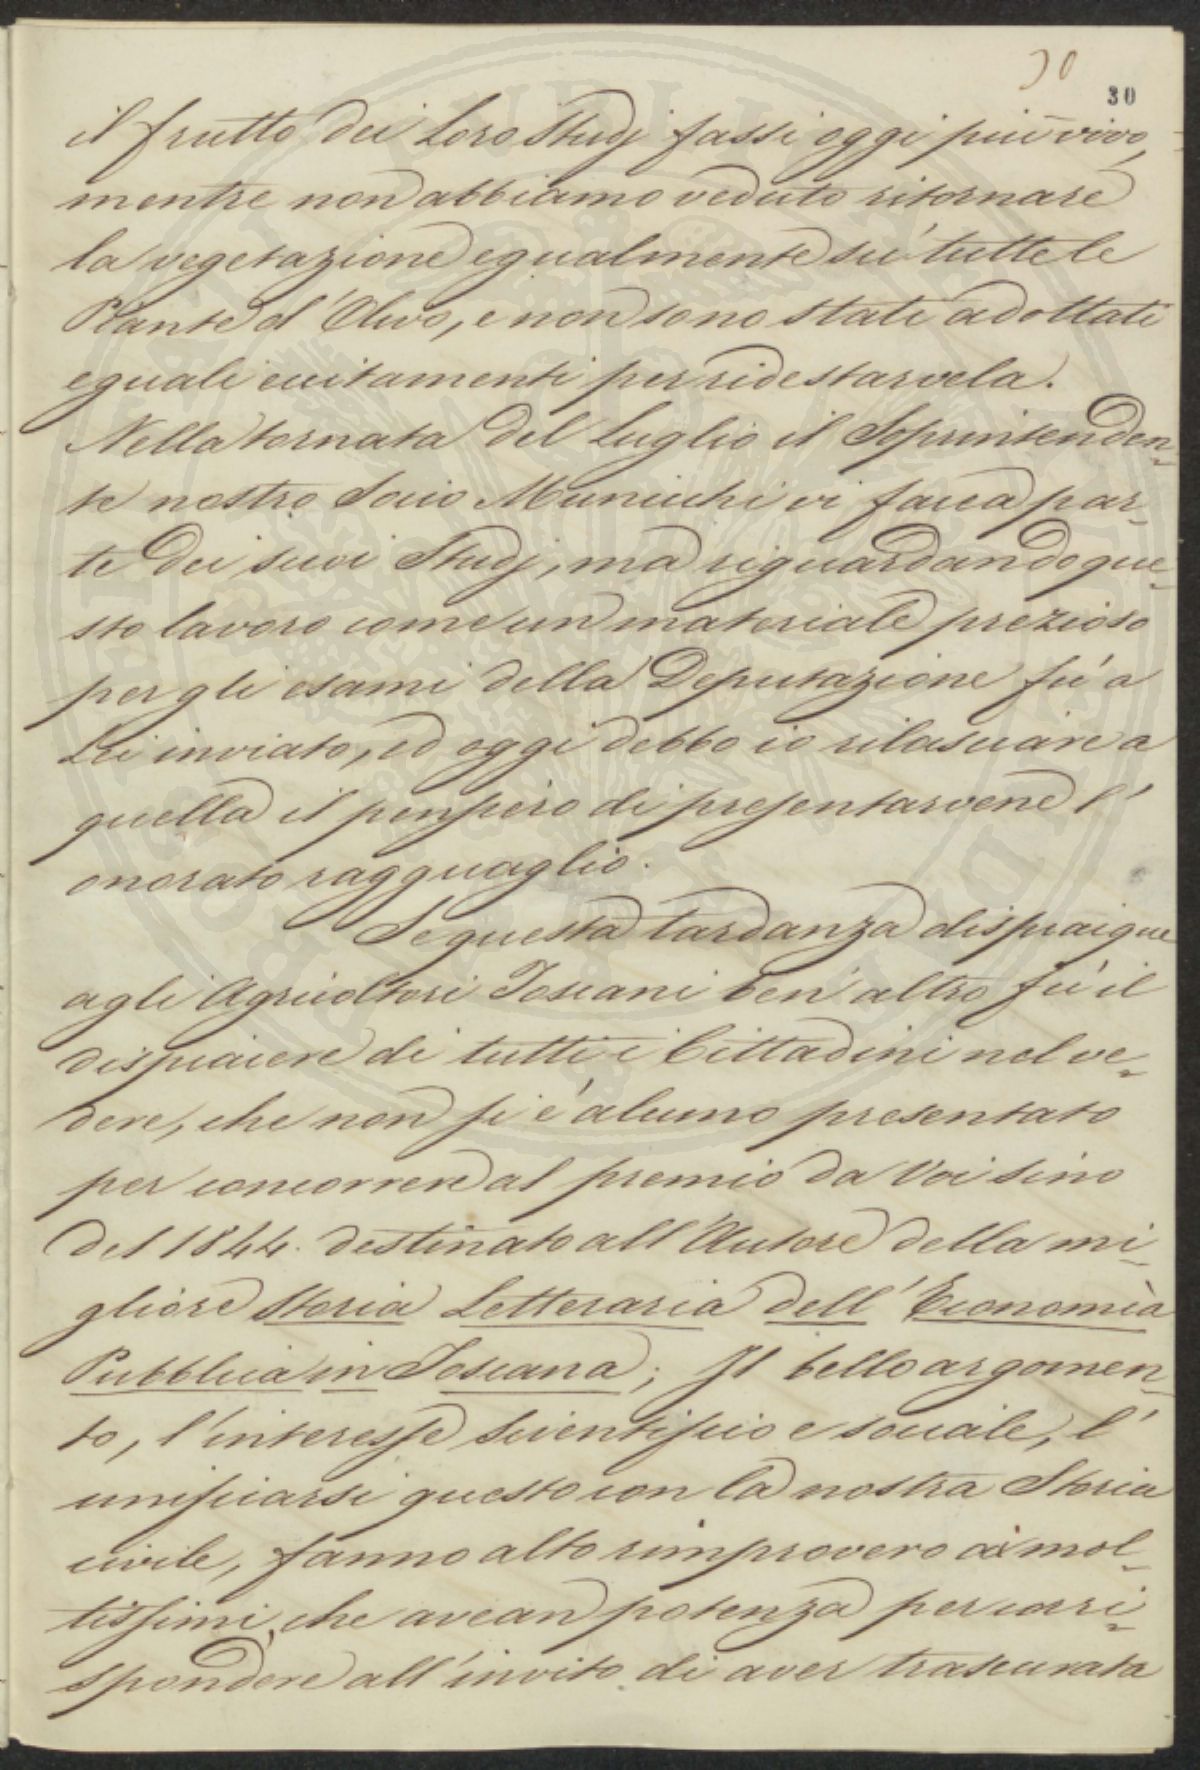 30
30
il frutto dei Loro Studj fassi oggi più vivo,
mentre non abbiamo veduto ritornare
la vegetazione egualmente su' tutte le
Piante d'Olivo, e non sono stati adottati
eguali eccitamenti per ridestarvela.
Nella tornata del Luglio il Soprintenden-
te nostro Socio Municchi vi facea par-
te dei suoi Studj, ma riguardando que-
sto lavoro come un materiale prezioso
per gli esami della Deputazione fu' a
Lei inviato, ed oggi debbo io rilasciare a
quella il pensiero di presentarvene l'
onorato ragguaglio.
Se questa tardanza dispiacque
agli Agricoltori Toscani ben' altro fu' il
dispiacere di tutti i Cittadini nel ve-
dere, che non si è alcuno presentato
per concorrere al premio da Voi sino
del 1844. destinato all'Autore della mi-
gliore Storia Letteraria dell' Economia
Pubblica in Toscana; Il bello argomen-
to, l'interesse Scientifico e sociale, l'
unificarsi questo con la nostra Storia
civile, fanno alto rimprovero ai mol-
tissimi, che avean potenza per corri-
spondere all'invito di aver trascurata